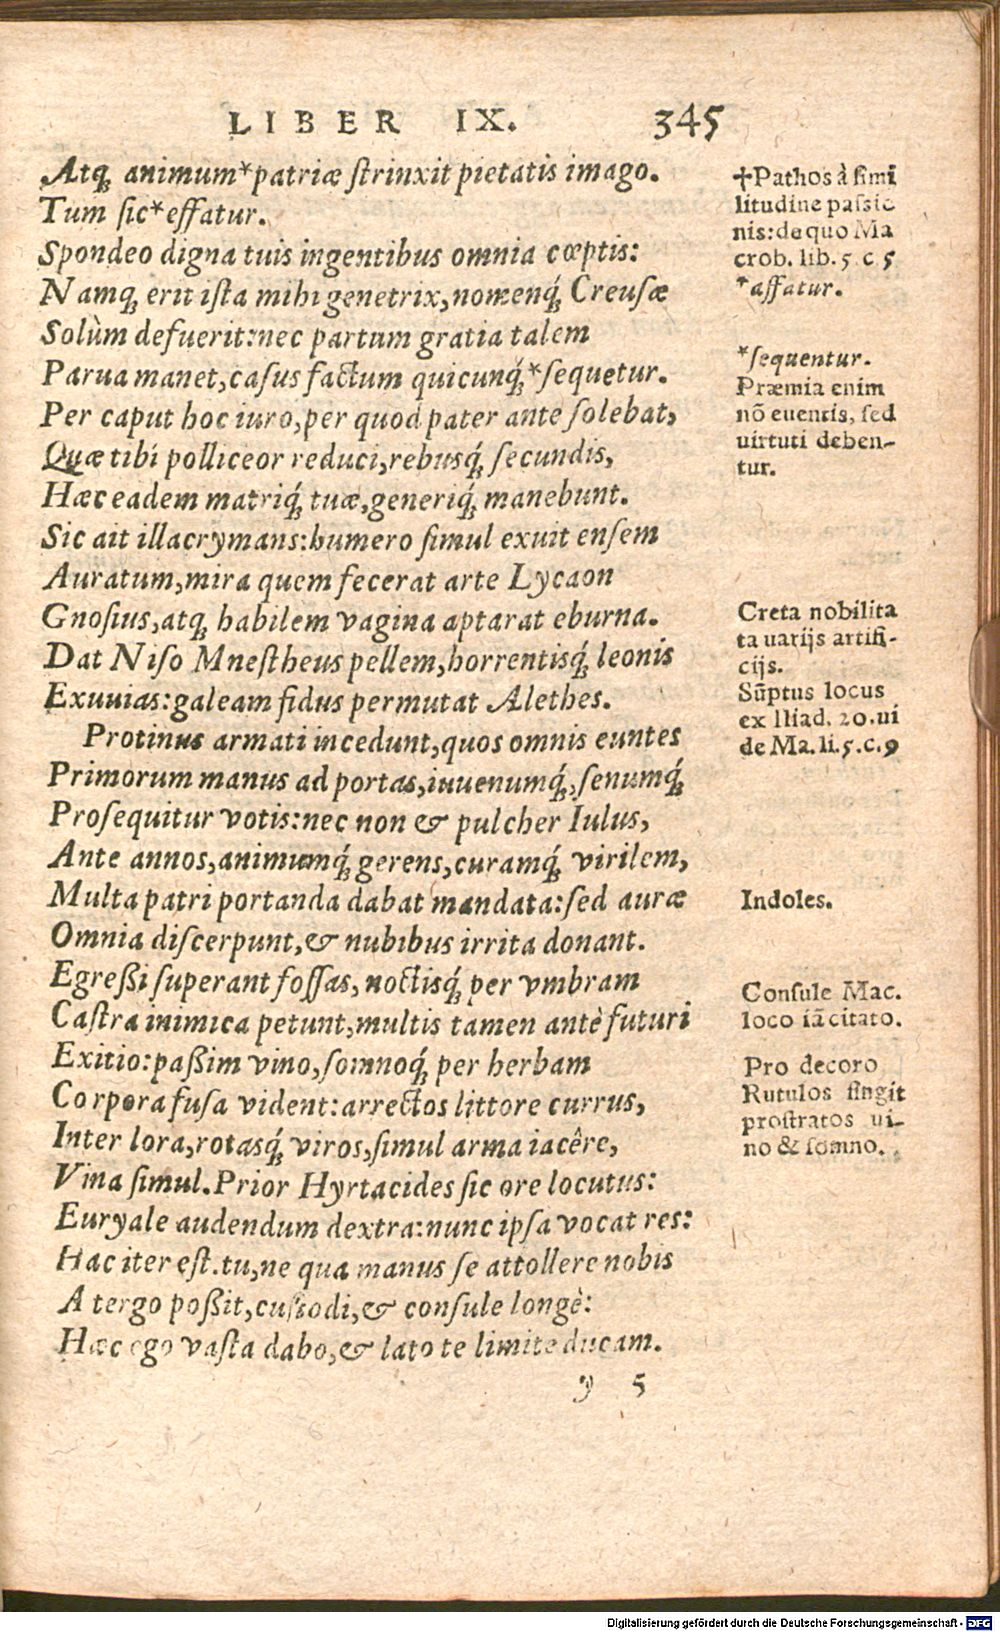 LIBER IX. 345
Atq; animum*patriæ ſtrinxit pietatis imago.
Tum ſic*effatur.
Spondeo digna tuis ingentibus omnia cœptis:
Namq; erit iſta mihi genetrix,nomenq́; Creuſæ
Solùm defuerit:nec partum gratia talem
Parua manet,caſus factum quicunq́;*ſequetur.
Per caput hoc iuro,per quod pater ante ſolebat,
Quæ tibi polliceor reduci,rebusq́; ſecundis,
Hæc eadem matriq́; tuæ,generiq́; manebunt.
Sic ait illacrymans:humero ſimul exuit enſem
Auratum,mira quem fecerat arte Lycaon
Gnoſius,atq; habilem vagina aptarat eburna.
Dat Niſo Mneſtheus pellem,horrentisq́; leonis
Exuuias:galeam fidus permutat Alethes.
Protinus armati incedunt,quos omnis euntes
Primorum manus ad portas,iuuenumq́;,ſenumq́;
Proſequitur votis:nec non & pulcher Iulus,
Ante annos,animumq́; gerens,curamq́; virilem,
Multa patri portanda dabat mandata:ſed auræ
Omnia diſcerpunt,& nubibus irrita donant.
Egreßi ſuperant foſſas, noctisq́; per vmbram
Caſtra inimica petunt,multis tamen antè futuri
Exitio:paßim vino,ſomnoq́; per herbam
Corpora fuſa vident:arrectos littore currus,
Inter lora,rotasq́; viros,ſimul arma iacêre,
Vina ſimul.Prior Hyrtacides ſic ore locutus:
Euryale audendum dextra:nunc ipſa vocat res:
Hac iter eſt.tu,ne qua manus ſe attollere nobis
A tergo poßit,cuſtodi,& conſule longè:
Hæc ego vaſta dabo,& lato te limite ducam.
y 5
✝Pathos à ſimi
litudine paſsio
nis:de quo Ma
crob. lib. 5. c. 5
*affatur.
*ſequentur.
Præmia enim
nõ euentis, ſed
uirtuti deben-
tur.
Creta nobilita
ta uarijs artifi-
cijs.
Sũptus locus
ex Iliad. 20.ui
de Ma. li.5.c.9
Indoles.
Conſule Mac.
loco iã citato.
Pro decoro
Rutulos fingit
proſtratos ui-
no & ſomno.
Digitalisierung gefördert durch die Deutsche Forschungsgemeinschaft - DFG